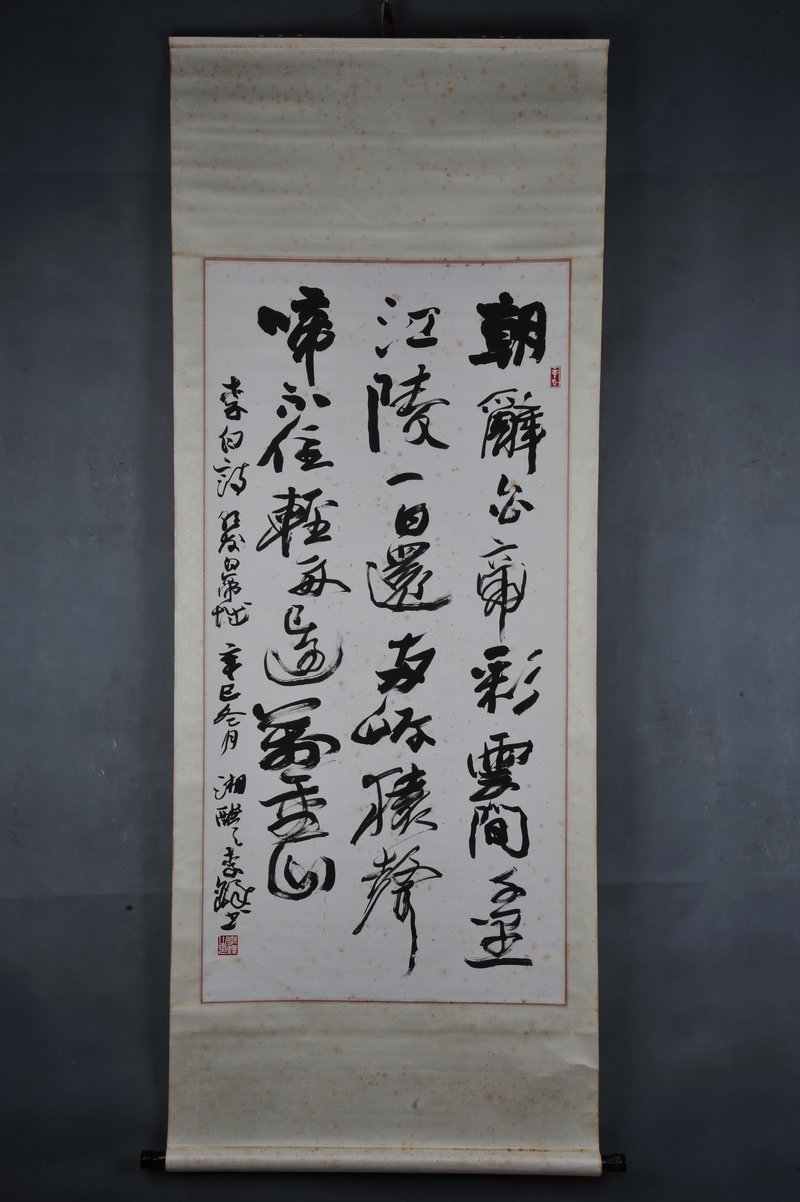 朝辭白帝彩雲間千里
江陵一日還兩岸猿聲
啼不住輕舟已過萬重山
李白詩 發白帝城 辛巳冬月 湘醴 李鐸書